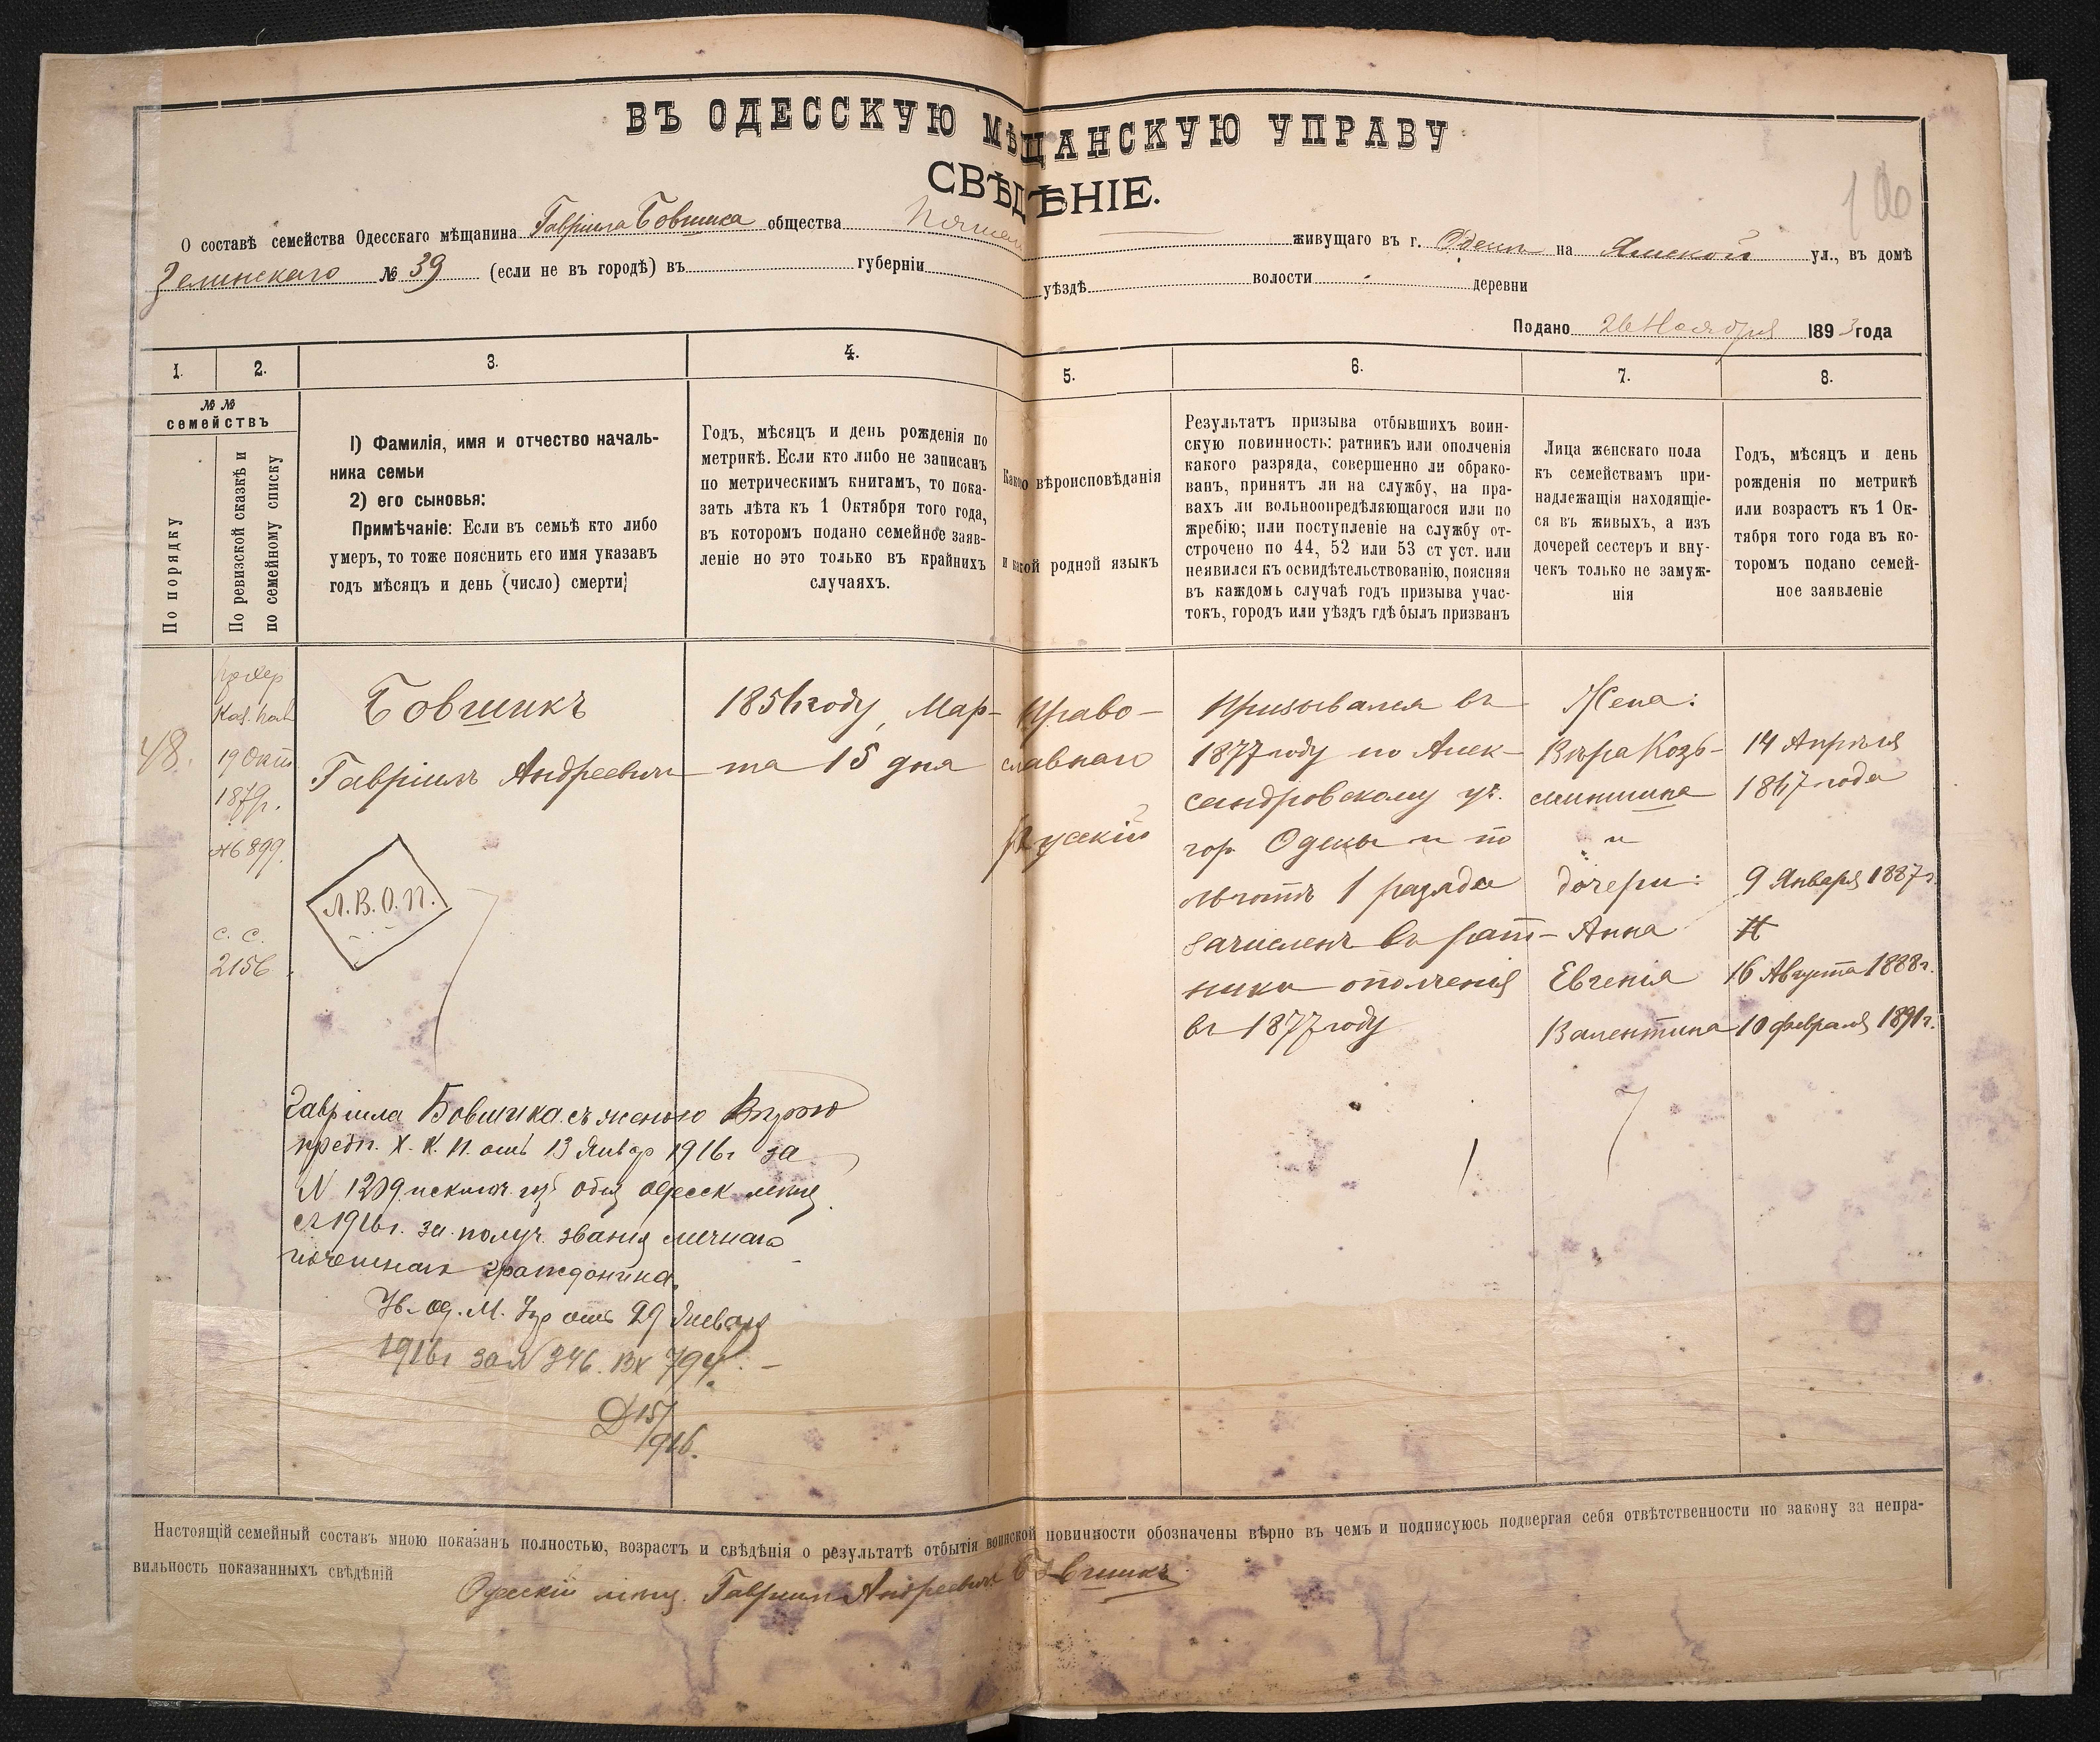 ВЪ ОДЕССКУЮ МѢЩАНСКУЮ УПРАВУ
СВѢДѢНІЕ.
100
О составѣ семейства Одесскаго мѣщанина Гавріила Бовшика общества живущаго въ г. Одессѣ на Ямской ул., въ домѣ
Зелинскаго № 39 (если не въ городѣ) въ губерніи уѣздѣ волости деревни
Подано 26 Ноября 1893 года
1.
2.
3.
4.
5.
6.
7.
8.
№ №
семействъ
По порядку
По ревизской сказкѣ и
по семейному списку
1) Фамилія, имя и отчество началь-
ника семьи
2) его сыновья:
Примѣчаніе: Если въ семьѣ кто либо
умеръ, то тоже пояснить его имя указавъ
годъ мѣсяцъ и день (число) смерти;
Годъ, мѣсяцъ и день рожденія по
метрикѣ. Если кто либо не записанъ
по метрическимъ книгамъ, то пока-
зать лѣта къ 1 Октября того года,
въ которомъ подано семейное заяв-
леніе но это только въ крайнихъ
случаяхъ.
Какого вѣроисповѣданія
и какой родной языкъ
Результатъ призыва отбывшихъ воин-
скую повинность: ратникъ или ополченія
какого разряда, совершенно ли обрако-
ванъ, принятъ ли на службу, на пра-
вахъ ли вольноопредѣляющагося или по
жребію; или поступленіе на службу от-
строчено по 44, 52 или 53 ст уст. или
неявился къ освидѣтельствованію, поясняя
въ каждомъ случаѣ годъ призыва учас-
токъ, городъ или уѣздъ гдѣ былъ призванъ
Лица женскаго пола
къ семействамъ при-
надлежащія находящіе-
ся въ живыхъ, а изъ
дочерей сестеръ и вну-
чекъ только не замуж-
нія
Годъ, мѣсяцъ и день
рожденія по метрикѣ
или возрастъ къ 1 Ок-
тября того года въ ко-
торомъ подано семей-
ное заявленіе
48.
19 Окт
1879г.
№6899.
с. с.
2156
Бовшикъ
Гавріилъ Андреевичъ
Л.В.О.П.
1856 году, Мар-
та 15 дня
Право-
славнаго
Русскій
Призывался въ
1877 году по Алек-
сандровскому уч.
гор Одессы и по
льготѣ 1 разряда
зачисленъ въ рат-
ники ополченія
въ 1877 году
Жена:
Вѣра Козь-
минишна
и
дочери:
Анна
Евгенія
Валентина
14 Апрѣля
1867 года
9 Января 1887г.
16 Августа 1888г.
10 февраля 1891г.
Гавріила Бовшика съ женою Вѣрою
предп. Х. К. П. отъ 13 Январ 1916г за
N 1209 исключ. изъ общ одесск мѣщ.
съ 1916г. за получ. званія личнаго
почетнаго гражданина.
Ув. Од. М. Упр отъ 29 Января
1916г за N 346. Вх 794. -
Д 15/1916.
Настоящій семейный составъ мною показанъ полностью, возрастъ и свѣдѣнія о результатѣ отбытія воинской повинности обозначены вѣрно въ чемъ и подписуюсь подвергая себя отвѣтственности по закону за непра-
вильность показанныхъ свѣдѣній
Одесскій мѣщ. Гавріилъ Андреевичъ Бовшикъ